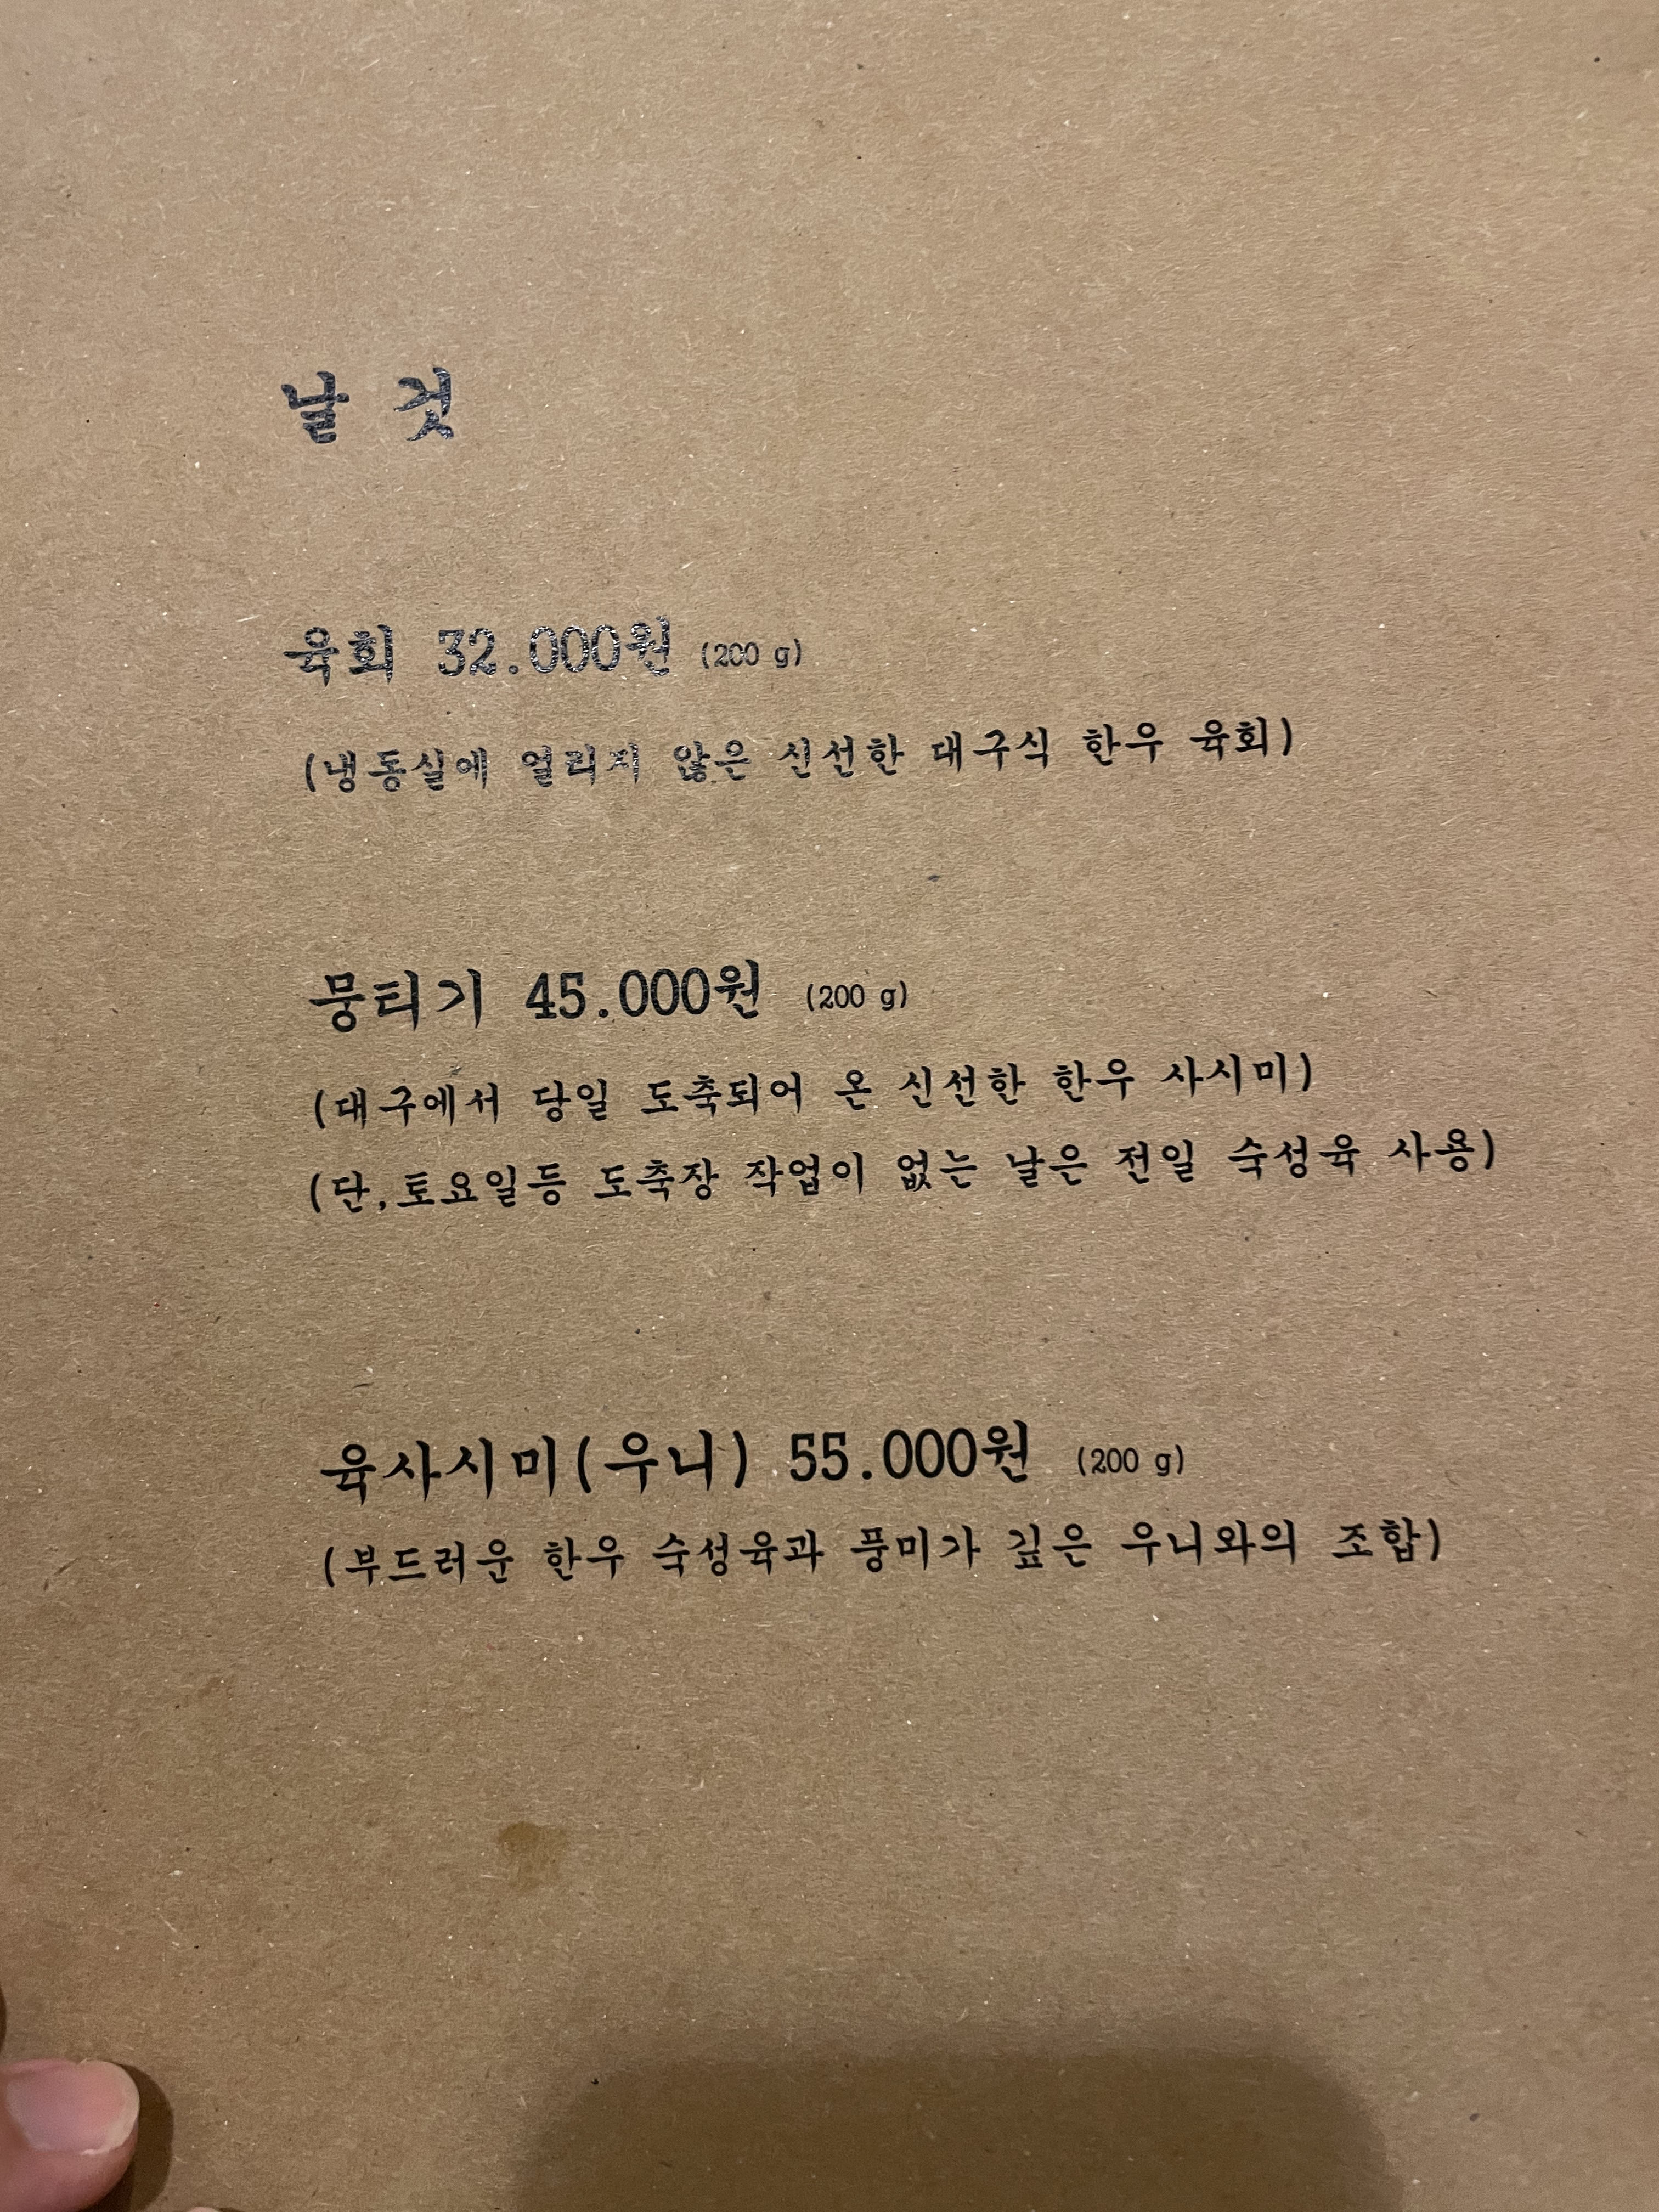 날 것
육회 32.000원 (200 g)
(냉동실에 얼리지 않은 신선한 대구식 한우 육회)
뭉티기 45.000원 (200 g)
(대구에서 당일 도축되어 온 신선한 한우 사시미)
(단,토요일등 도축장 작업이 없는 날은 전일 숙성육 사용)
육사시미(우니) 55.000원 (200 g)
(부드러운 한우 숙성육과 풍미가 깊은 우니와의 조합)